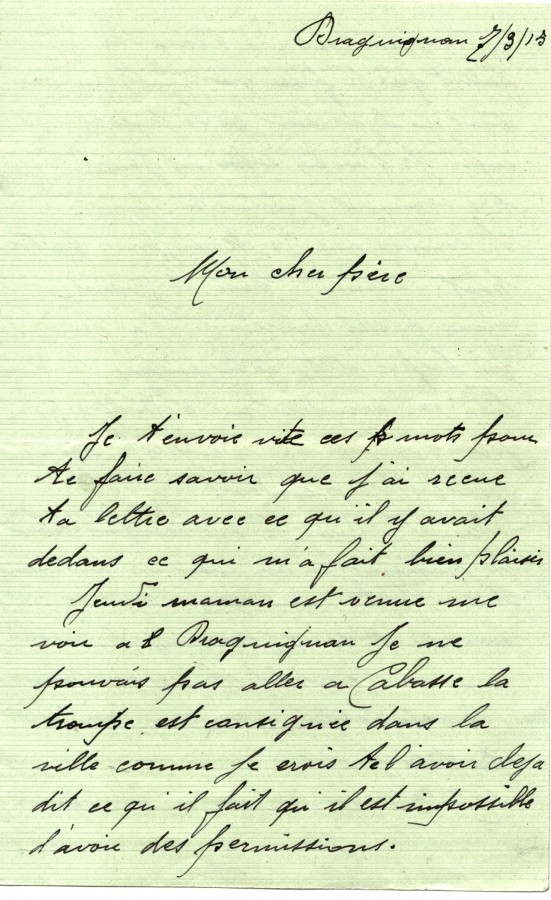 Draguignan 7/3/15
Mon cher frère
Je t'envoie vite ces mots pour
te faire savoir que j'ai recue
ta lettre avec ce qu'il y avait
dedans ce qui m'a fait bien plaisir
Jeudi maman est venue me
voir a Draguignan Je ne
pouvais pas aller a Cabasse la
troupe est consignée dans la
ville comme Je crois te l'avoir deja
dit ce qu'il fait qu'il est impossible
d'avoir des permissions.